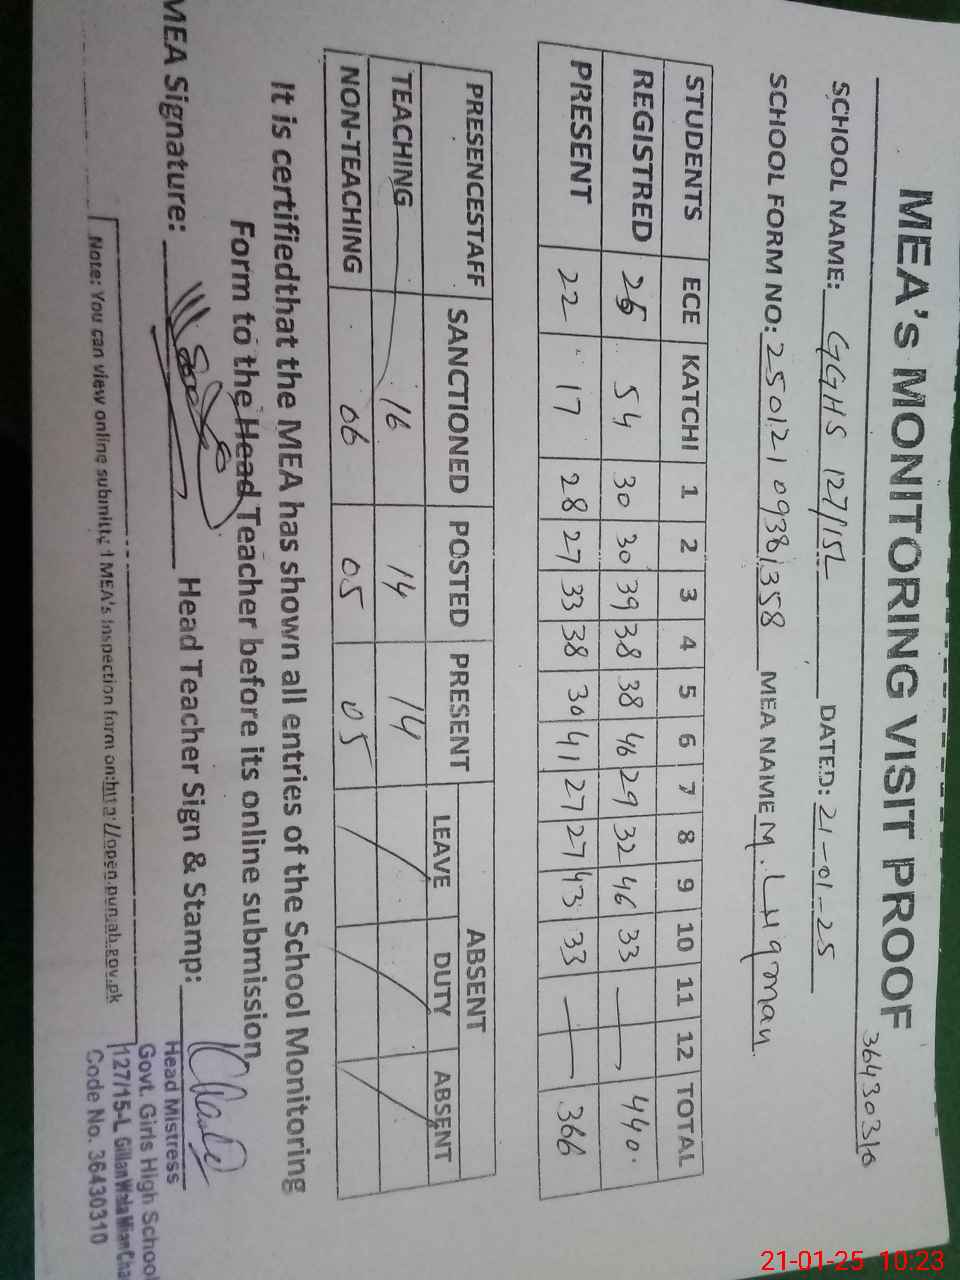 MEA's MONITORING VISIT PROOF
36430310
SCHOOL NAME: GGHS 127/15L DATED: 21-01-25
SCHOOL FORM NO: 25012109381358 MEA NAIME M. LHqman
STUDENTS ECE KATCHI 1 2 3 4 5 6 7 8 9 10 11 12 TOTAL
REGISTRED 25 54 30 30 39 38 38 46 29 32 46 33 — — 440
PRESENT 22 17 28 27 33 38 30 41 27 27 43 33 — — 366
PRESENCESTAFF SANCTIONED POSTED PRESENT ABSENT
LEAVE DUTY ABSENT
TEACHING 16 14 14 / / /
NON-TEACHING 06 05 05
It is certifiedthat the MEA has shown all entries of the School Monitoring
Form to the Head Teacher before its online submission.
MEA Signature: Head Teacher Sign & Stamp:
Head Mistress
Govt. Girls High School
127/15-L GillanWala Mian Cha
Code No. 36430310
Note: You can view online submitted MEA's inspection form on:http://open.punjab.gov.pk
21-01-25 10:23